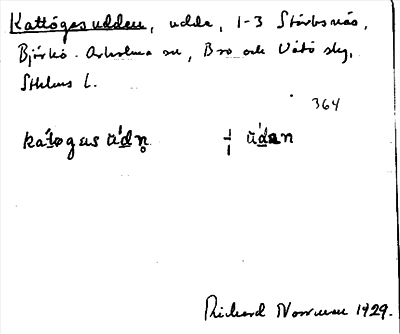 Kattögesudden, udde, 1-3 Störbsnäs,
Björkö-Arholma sn, Bro och Vätö skg,
Sthlms l.
364
katøgəs ùdn̥ ⸸ ùdən
Richard Norrman 1929.